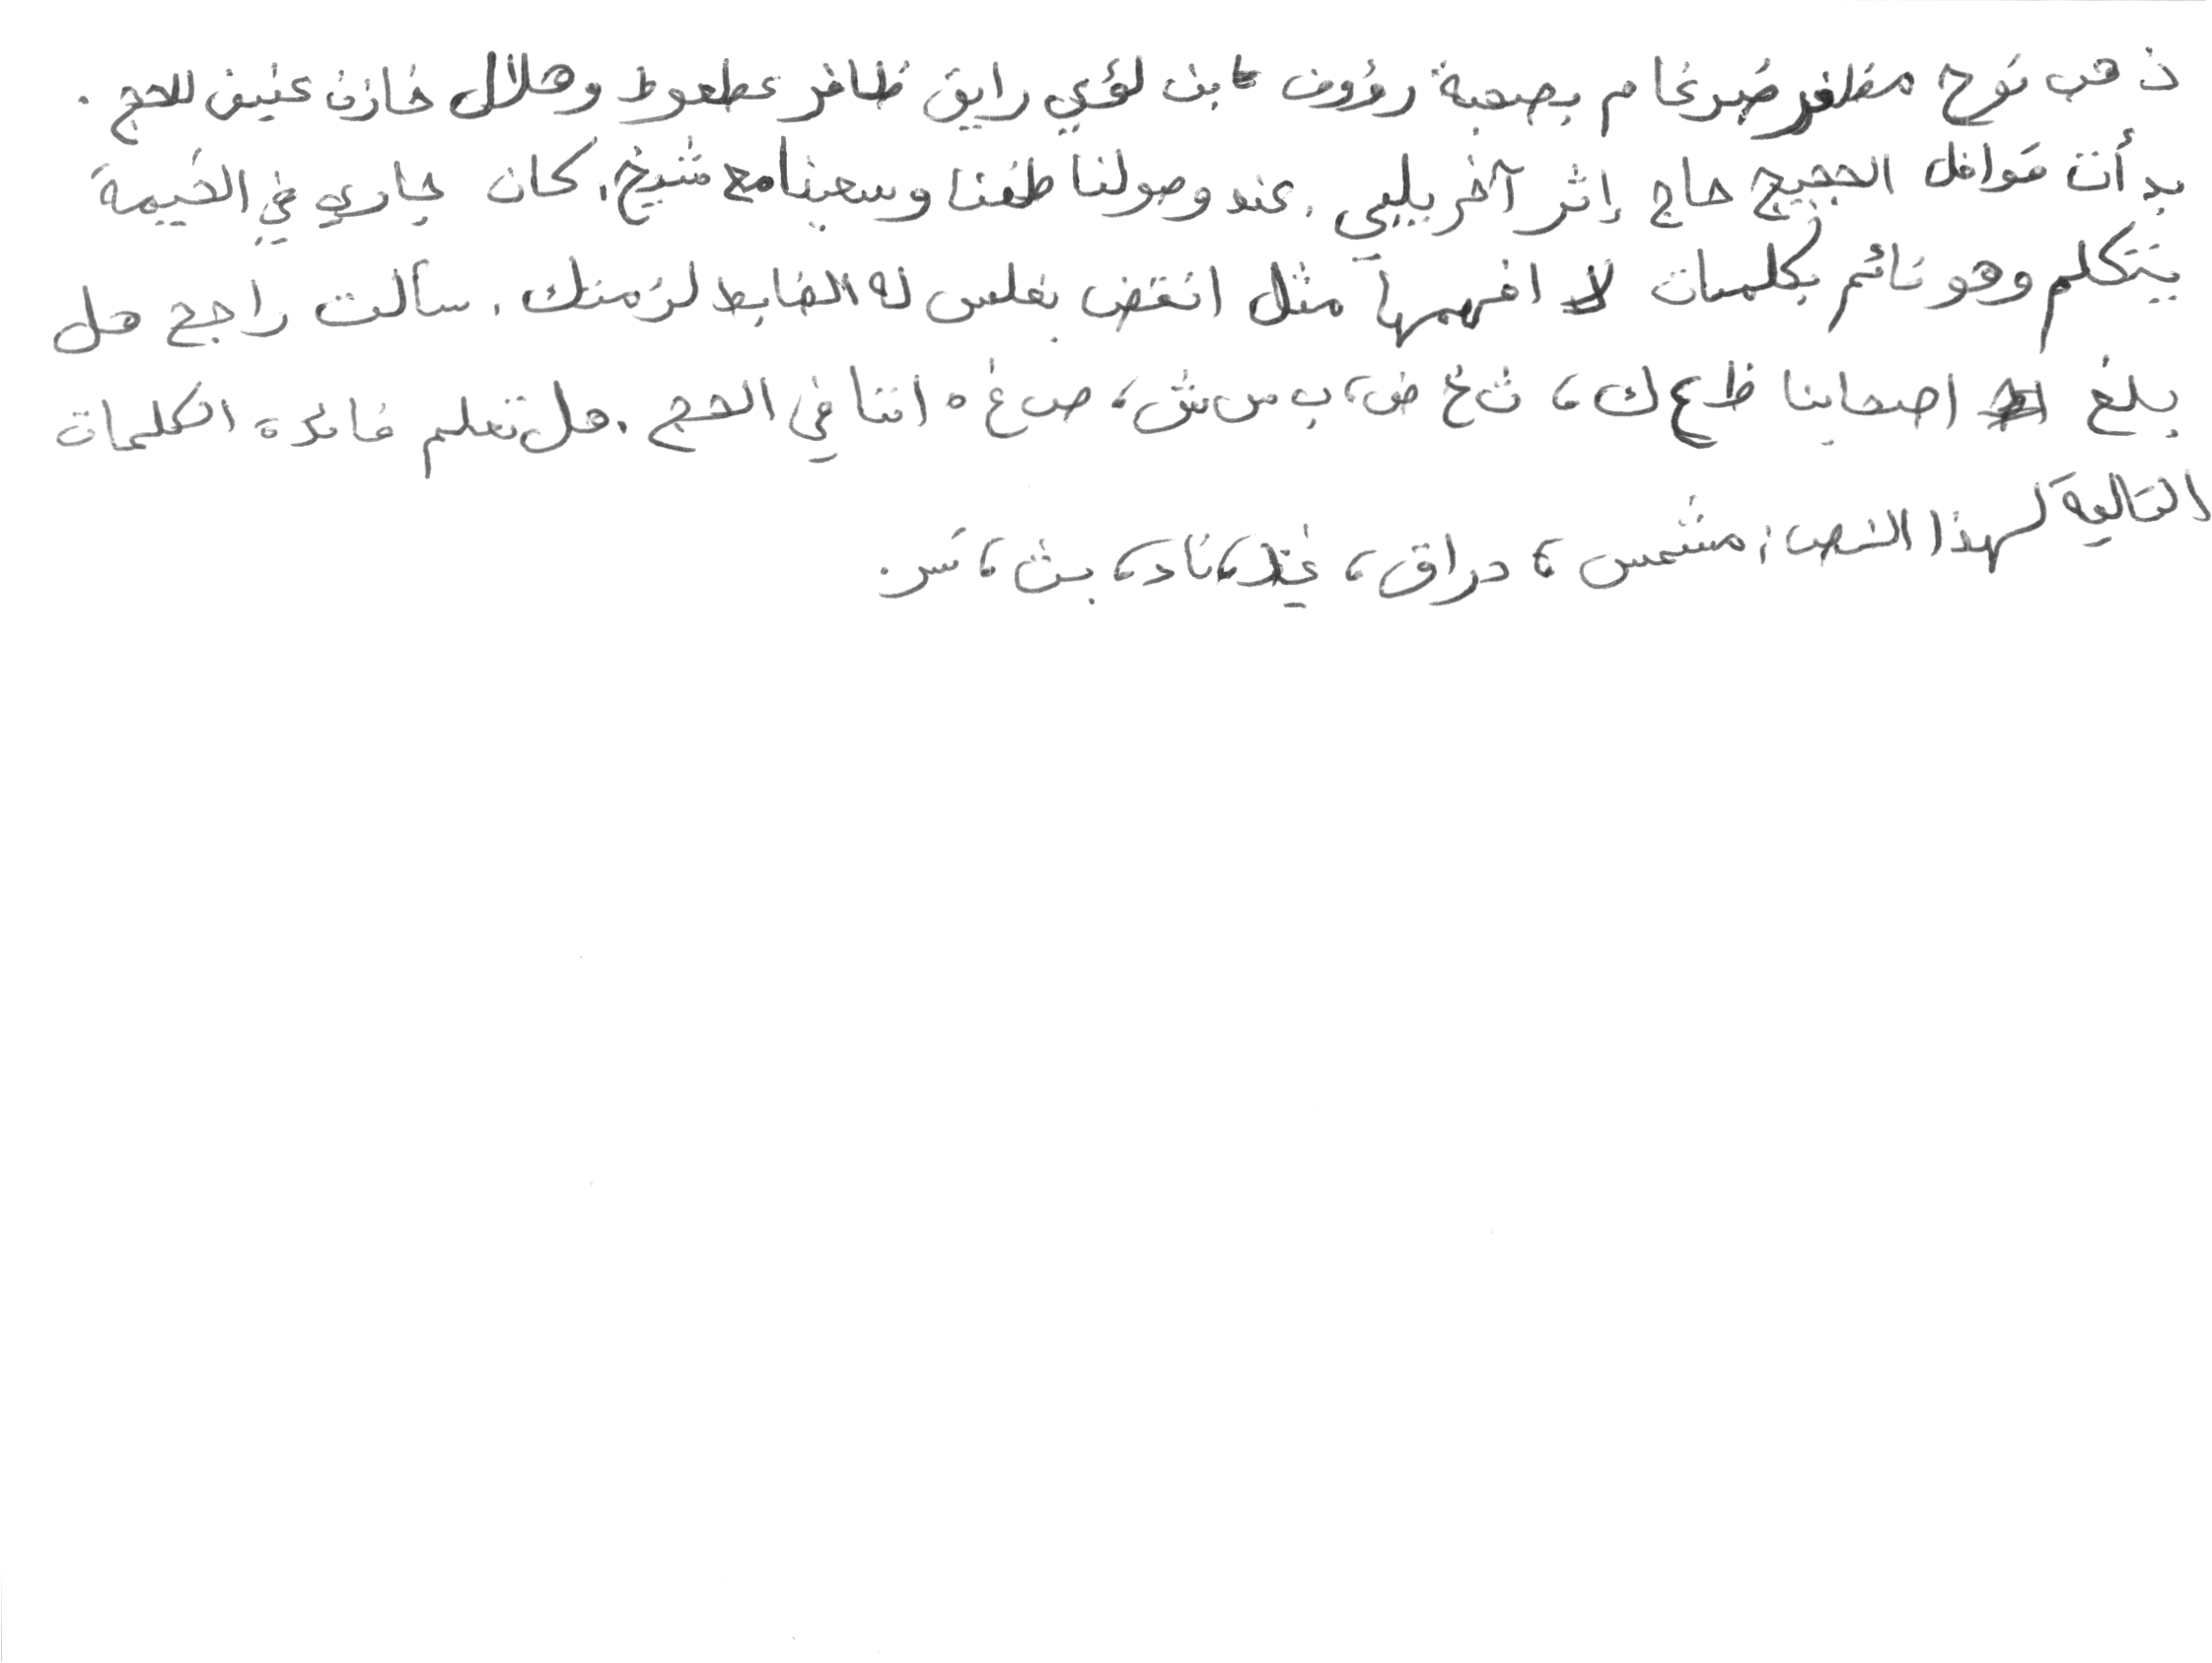 ذهب نوح مظفر ضرغام بصحبة رؤوف بن لؤي رايق ظافر عطعوط وهلال خازن عفيف للحج .
بدأت قوافل الحجيج حاج إثر آخر يلبي . عند وصولنا طفنا وسعينا مع شيخ . كان جاري في الخيمة
يتكلم وهو نائم بكلمات لا افهمها مثل انقض بغلس له الضابط لزمنك . سألت راجح هل
بلغ اصحابنا ظ ع ك ، ث خ ض ، ب س ش ، ص غ ه اننا في الحج . هل تعلم فائدة الكلمات
التالية لهذا النص : مشمس ، دراق ، غيظ ، ناد ، بث ، نس .